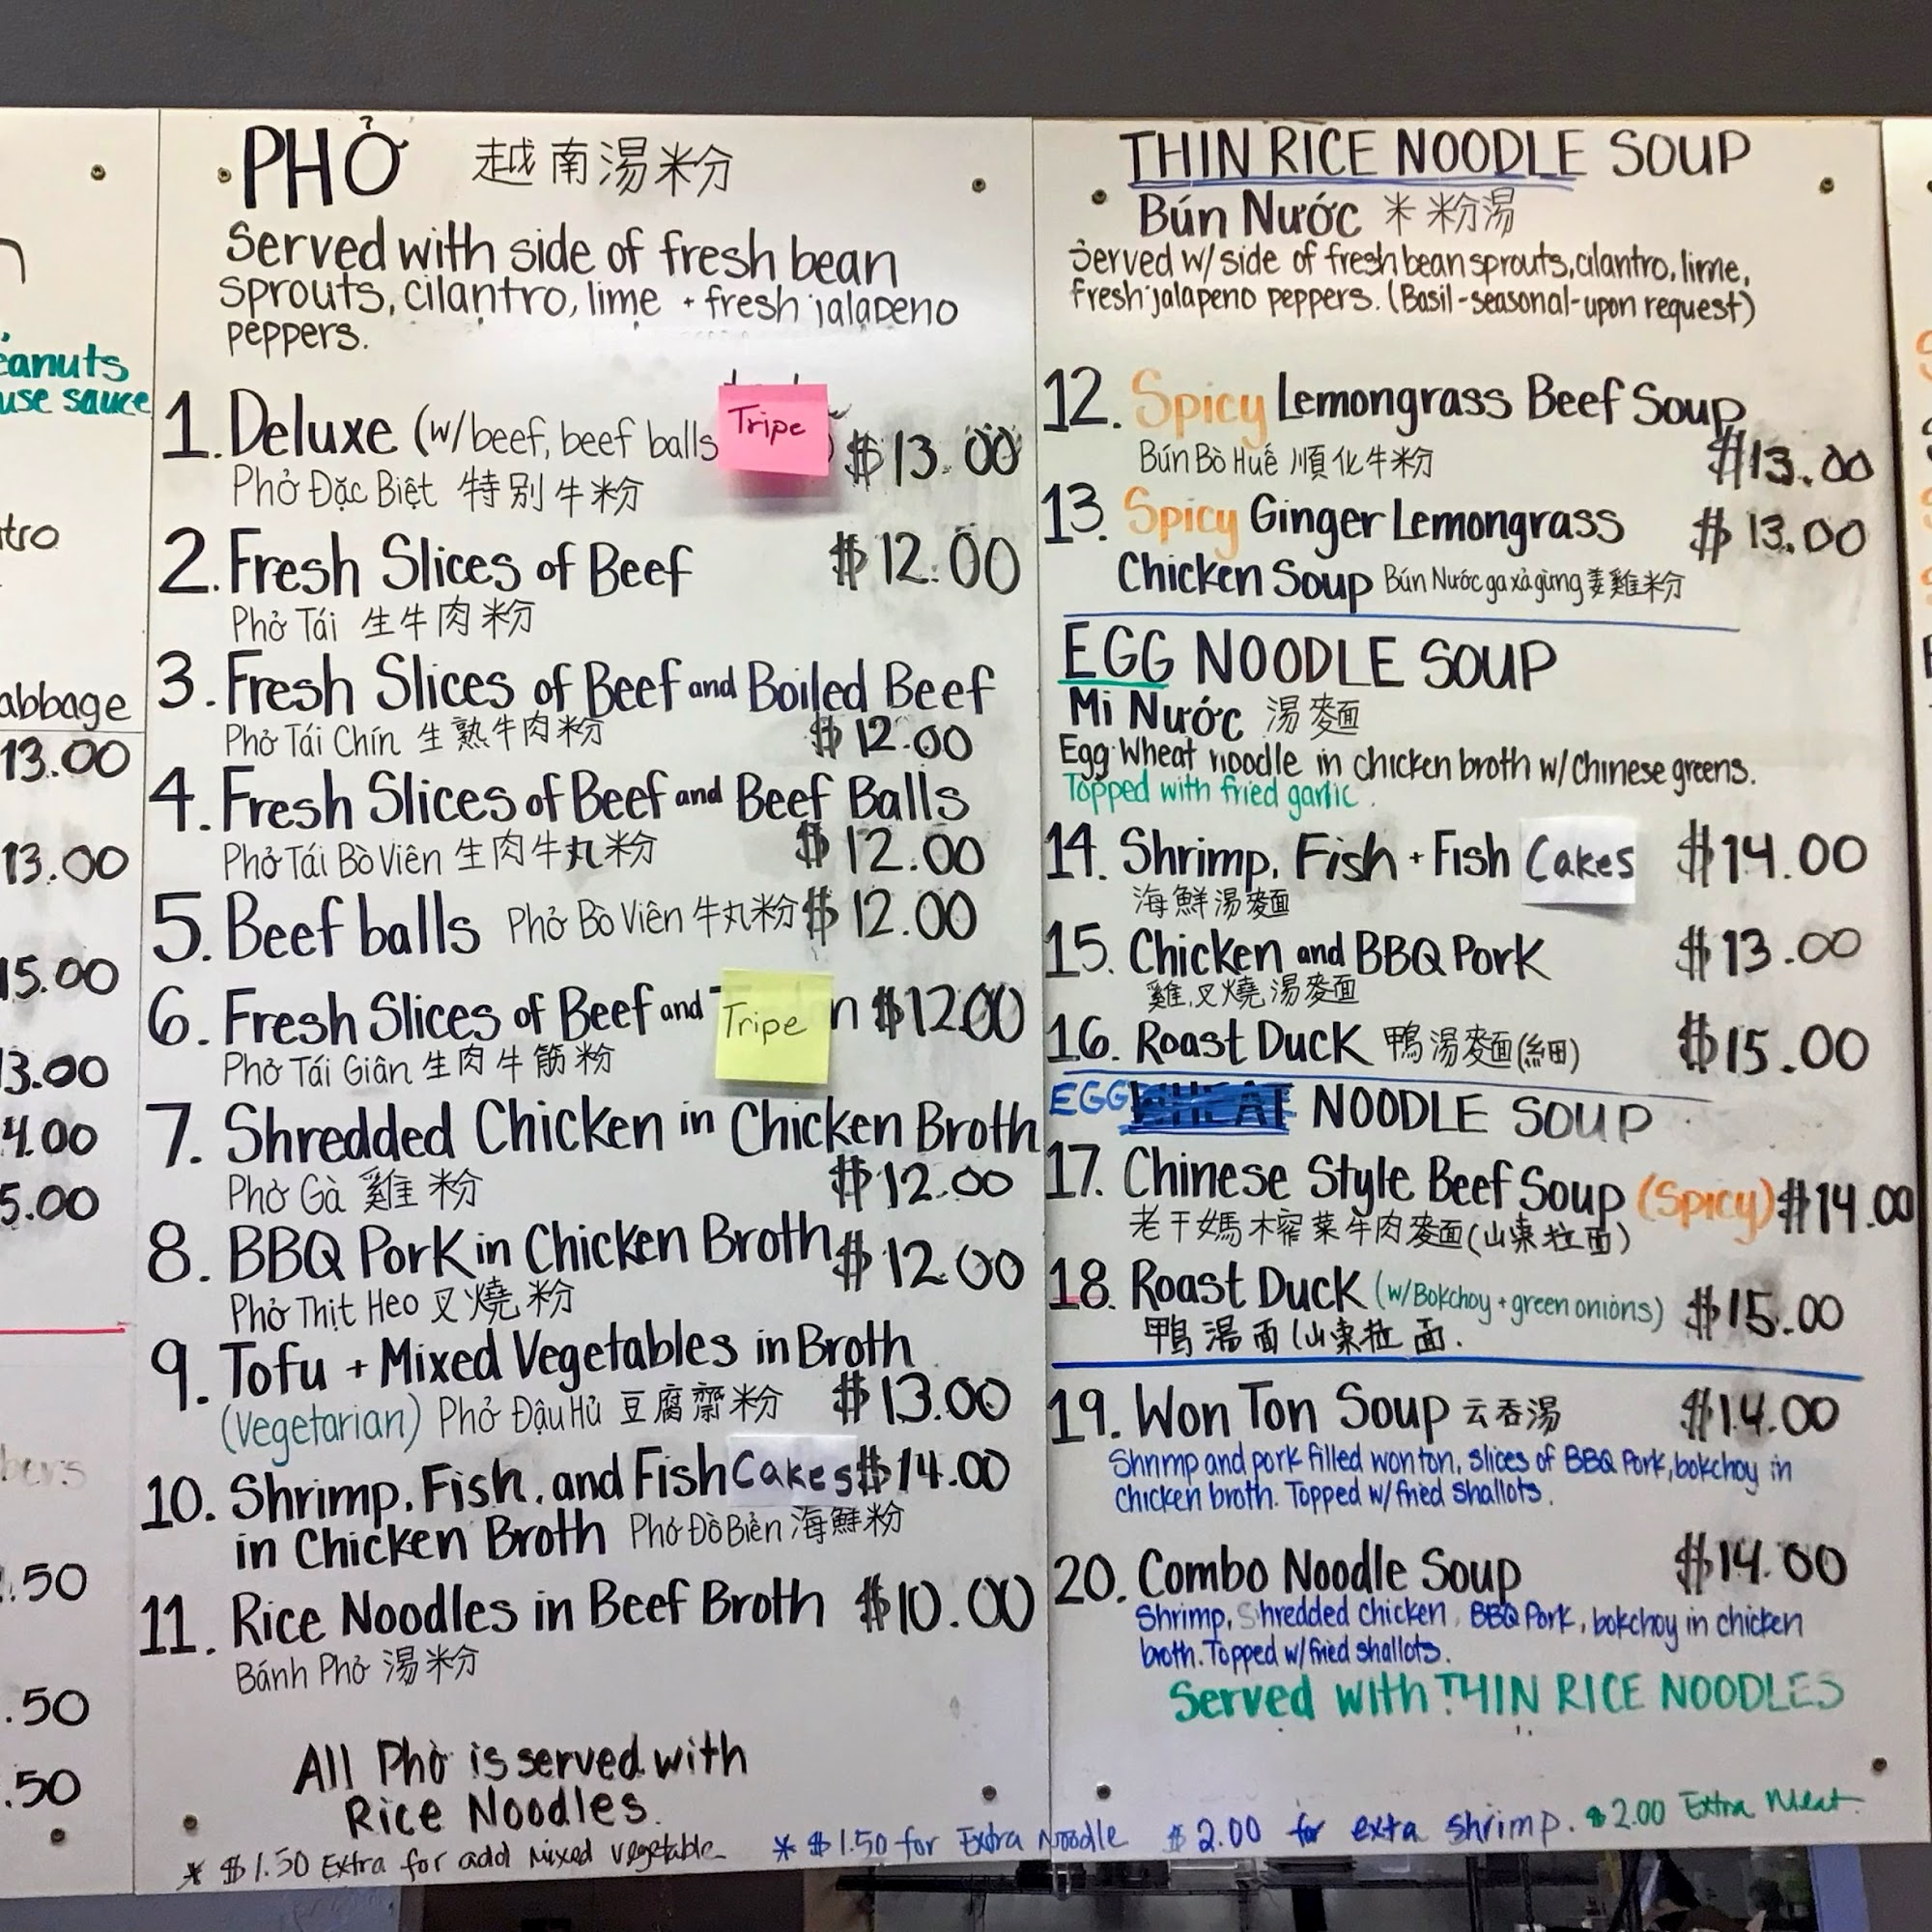 eanuts
use sauce
tro
abbage
13.00
13.00
15.00
3.00
4.00
5.00
.50
.50
.50
PHỞ 越南湯粉
Served with side of fresh bean
sprouts, cilantro, lime + fresh jalapeno
peppers.
1. Deluxe (w/beef, beef balls Tripe ) $13.00
Phở Đặc Biệt 特别牛粉
2. Fresh Slices of Beef $12.00
Phở Tái 生牛肉粉
3. Fresh Slices of Beef and Boiled Beef
Phở Tái Chín 生熟牛肉粉 $12.00
4. Fresh Slices of Beef and Beef Balls
Phở Tái Bò Viên 生肉牛丸粉 $12.00
5. Beef balls Phở Bò Viên 牛丸粉 $12.00
6. Fresh Slices of Beef and Tripe n $12.00
Phở Tái Giân 生肉牛筋粉
7. Shredded Chicken in Chicken Broth
Phở Gà 雞粉 $12.00
8. BBQ Pork in Chicken Broth $12.00
Phở Thịt Heo 叉燒粉
9. Tofu + Mixed Vegetables in Broth
(Vegetarian) Phở Đậu Hủ 豆腐齋粉 $13.00
10. Shrimp, Fish, and Fish Cakes $14.00
in Chicken Broth Phở Đồ Biển 海鮮粉
11. Rice Noodles in Beef Broth $10.00
Bánh Phở 湯粉
All Phở is served with
Rice Noodles.
* $1.50 Extra for add mixed vegetable
THIN RICE NOODLE SOUP
Bún Nước 米粉湯
Served w/ side of fresh bean sprouts, cilantro, lime,
fresh jalapeno peppers. (Basil-seasonal-upon request)
12. Spicy Lemongrass Beef Soup
Bún Bò Huế 順化牛粉 $13.00
13. Spicy Ginger Lemongrass $13.00
Chicken Soup Bún Nước ga xả gừng 姜雞粉
EGG NOODLE SOUP
Mì Nước 湯麵
Egg Wheat noodle in chicken broth w/ Chinese greens.
Topped with fried garlic.
14. Shrimp, Fish + Fish Cakes $14.00
海鮮湯麵
15. Chicken and BBQ Pork $13.00
雞,叉燒湯麵
16. Roast Duck 鴨湯麵(細) $15.00
EGG WHEAT NOODLE SOUP
17. Chinese Style Beef Soup (Spicy) $14.00
老干媽木窄菜牛肉麥面(山東拉面)
18. Roast Duck (w/Bokchoy + green onions) $15.00
鴨湯面(山東拉面.
19. Won Ton Soup 云吞湯 $14.00
Shrimp and pork filled wonton, slices of BBQ Pork, bokchoy in
chicken broth. Topped w/ fried shallots.
20. Combo Noodle Soup $14.00
Shrimp, Shredded chicken, BBQ Pork, bokchoy in chicken
broth. Topped w/ fried shallots.
Served with THIN RICE NOODLES
* $1.50 for Extra Noodle $2.00 for exta shrimp. $2.00 Extra Meat